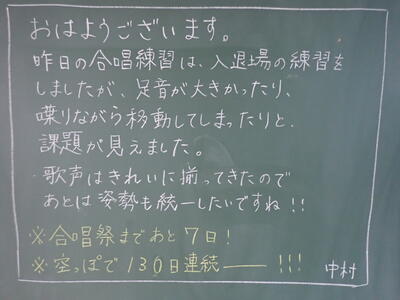 おはようございます。
昨日の合唱練習は、入退場の練習を
しましたが、足音が大きかったり、
喋りながら移動してしまったりと
課題が見えました。
歌声はきれいに揃ってきたので
あとは姿勢も統一したいですね!!
※合唱祭まであと7日!
※空っぽで130日連続――!!!
中村